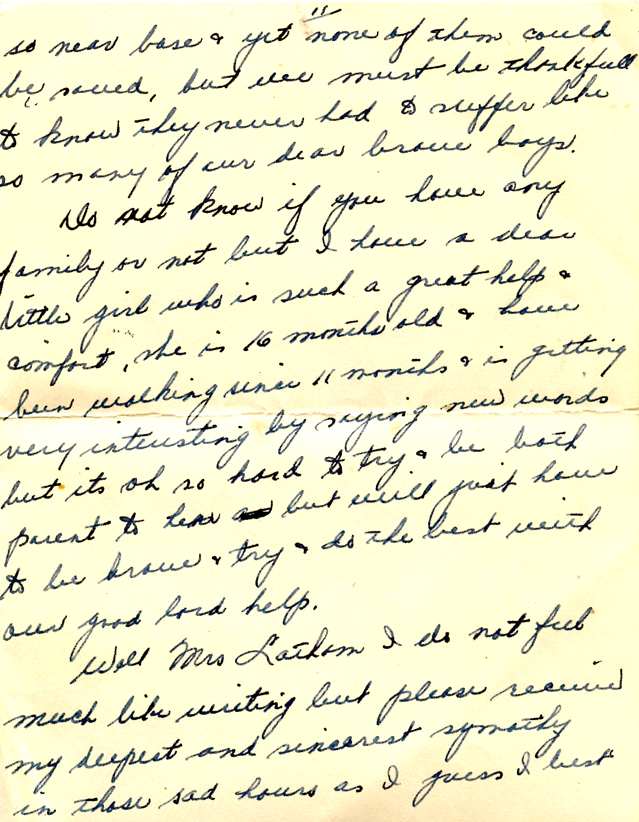 so near base & yet none of them could
be saved, but we must be thankfull
to know they never had to suffer like
so many of our dear brave boys.
Do not know if you have any
family or not but I have a dear
little girl who is such a great help &
comfort, she is 16 months old & have
been walking since 11 months & is getting
very interesting by saying new words
but its oh so hard to try & be both
parent to her but will just have
to be brave & try & do the best with
our good lord help.
Well Mrs Latham I do not feel
much like writing but please receive
my deepest and sincerest symathy
in those sad hours as I guess I best